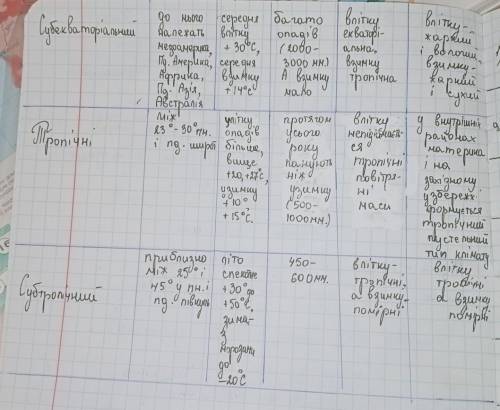 Субекваторіальний
до нього
належать
Пд. Америка,
Африка,
Пд. Азія,
Австралія
середня
влітку
+30°С,
середня
взимку
+14°С
багато
опадів
(2000-
3000 мм.)
А взимку
мало
влітку
екваторі-
альна,
взимку
тропічна
влітку-
жаркий
і вологий,
взимку-
жаркий
і сухий
Тропічні
між
23°-30° пн.
і пд. широт
улітку
опадів
більше,
вище
+20,+27°С,
узимку
+10°
+15°С.
протягом
усього
року
панують
ніж
узимку
(500-
1000мм.)
влітку
ся
тропічні
повітря-
ні
маси
у внутрішніх
районах
материка
і на
західному
узбереж
формується
тропічний
пустельний
тип клімату
Субтропічний
приблизно
між 25° і
45° у пн. і
пд. півкулі
літо
спекотне
+30° до
+50°С,
зима-
з
морозами
до
-20°С
450-
600мм.
влітку-
тропічні,
а взимку-
помірні
влітку
тропічні
а взимку
помірні